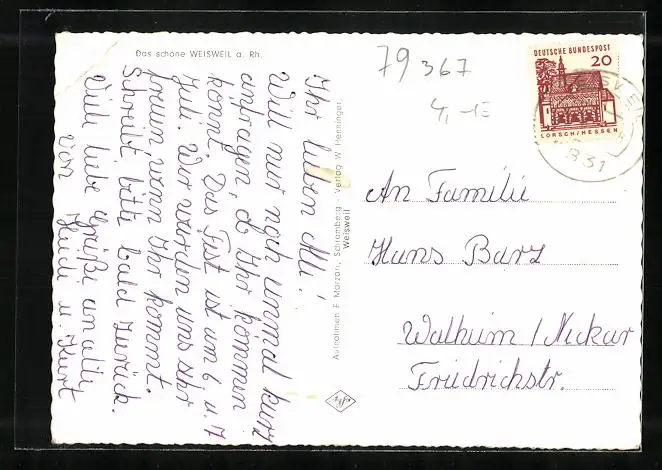 Das schöne WEISWEIL a. Rh.
79367
4,-E
DEUTSCHE BUNDESPOST
20
LORSCH/HESSEN
831
Ihr lieben All!
Will nur noch einmal kurz
anfragen, ob Ihr kommen
könnt. Das Fest ist am 6. u. 7
Juli. Wir würden uns sehr
freuen wenn Ihr kommt.
Schreibt bitte bald zurück.
Viele liebe Grüße an alle
von Heidi u. Kurt
Aufnahmen F. Marzari, Schramberg Verlag W. Henninger,
Weisweil
Agfa
An Familie
Hans Barz
Walheim / Neckar
Friedrichstr.